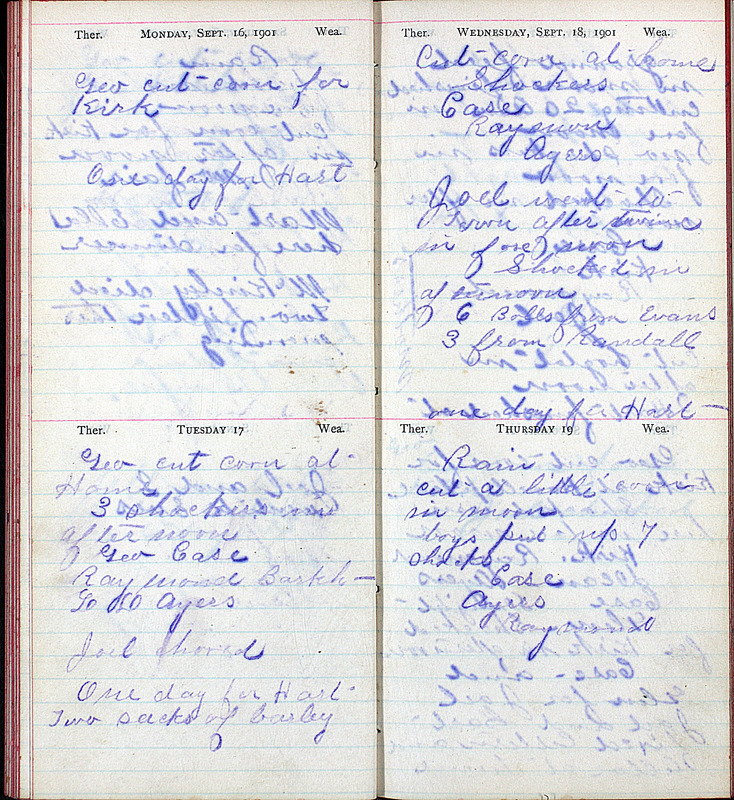 Ther. MONDAY, SEPT. 16, 1901 Wea.
Geo cut corn for
Kirk
One day for Hart
Ther. TUESDAY 17 Wea.
Geo cut corn at
Home
3 shockers in
after noon
Geo Case
Raymond
Ayers
Joel chored
One day for Hart
Two sacks of barley
Ther. WEDNESDAY, SEPT. 18, 1901 Wea.
Cut corn at home
Shockers
Case
Raymon
Ayers
Joel went to
Town after twine
in fore noon
Shocked in
afternoon
6 Balls from Evans
3 from Randall
one day for Hart
Ther. THURSDAY 19 Wea.
Rain
cut a little corn
in noon
boys put up 7
shocks
Case
Ayres
Raymond